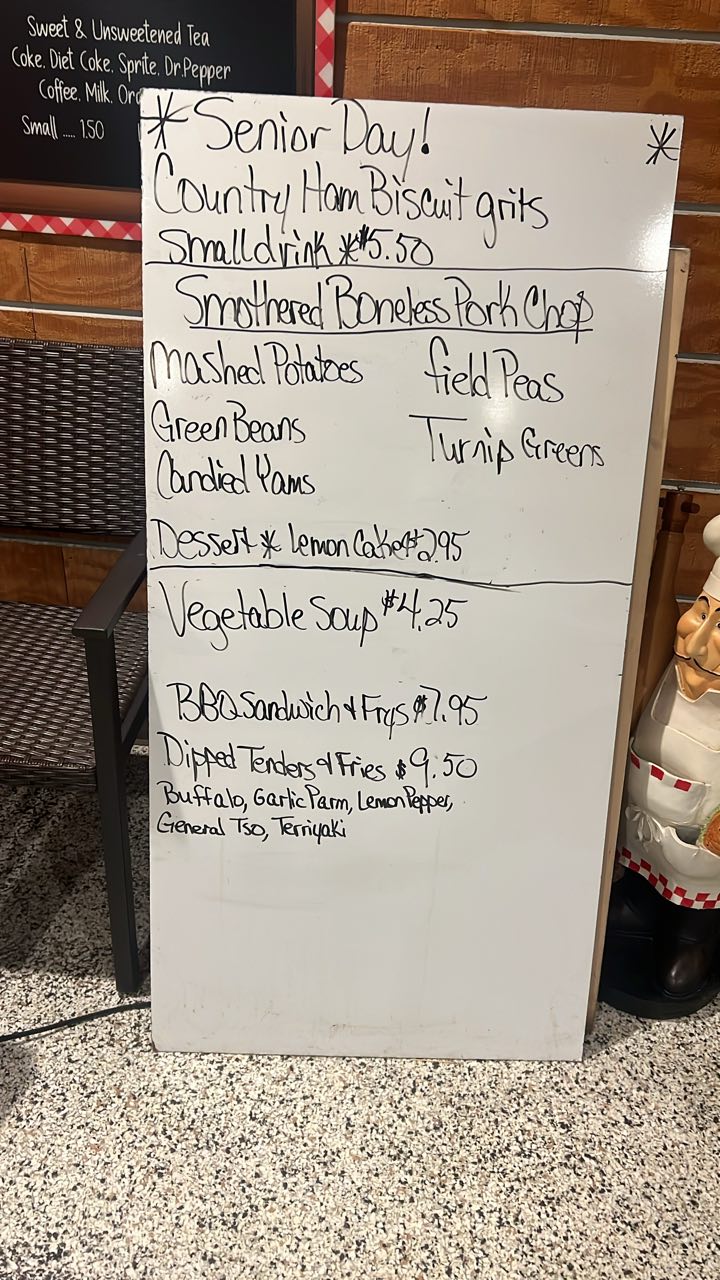 Sweet & Unsweetened Tea
Coke, Diet Coke, Sprite, Dr.Pepper
Coffee, Milk,
Small ..... 1.50
* Senior Day! *
Country Ham Biscuit grits
Small drink * $5.50
Smothered Boneless Pork Chop
Mashed Potatoes
Field Peas
Green Beans
Turnip Greens
Candied Yams
Dessert * Lemon Cake $2.95
Vegetable Soup $4.25
BBQ Sandwich & Frys $7.95
Dipped Tenders & Fries $9.50
Buffalo, Garlic Parm, Lemon Pepper,
General Tso, Terriyaki